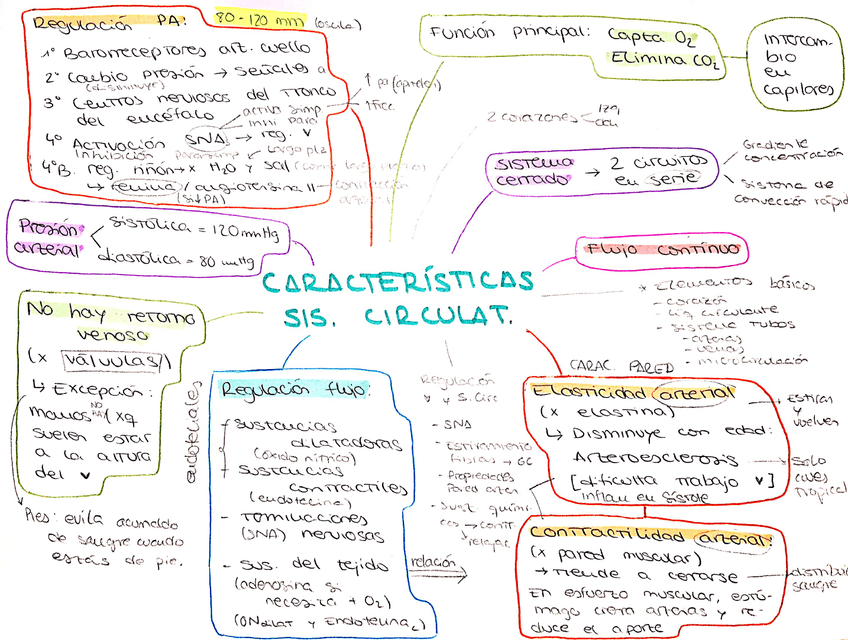 Regulación PA: 80-120 mm (oscila)
1º Barorreceptores art. cuello
2º Cambio presión → señales a
(disminuye)
3º Centros nerviosos del tronco
del encéfalo
activa simp
inhi para
↑ pa (aprieto)
↑ frec
4º Activación SNA → reg. ♥
Inhibición parasimp
4ºB. reg. riñón → x H₂O y sal
↳ renina / angiotensina II
(si ↓ PA)
Función principal: Capta O₂
Elimina CO₂
Intercam-
bio
en
capilares
2 corazones < izq
dch
Sistema
cerrado → 2 circuitos
en serie
Gradiente
concentración
Sistema de
convección rápid
Presión
arterial
sistólica = 120 mmHg
diastólica = 80 mmHg
Flujo continuo
CARACTERÍSTICAS
SIS. CIRCULAT.
* Elementos básicos
- corazón
- líq circulante
- sistema tubos
- arterias
- venas
- microcirculación
No hay retorno
venoso
(x válvulas)
↳ Excepción:
manos NO HAY (xq
suelen estar
a la altura
del ♥
Pies: evita acumulado
de sangre cuando
estás de pie.
endoteliales
Regulación flujo:
- sustancias
dilatadoras
(óxido nítrico)
- sustancias
contráctiles
(endotelina)
- Terminaciones
(SNA) nerviosas
- sus. del tejido
(adenosina si
necesita + O₂)
(ONdilat y Endotelina
relación
Regulación
♥ y S. Circ
- SNA
- Estiramiento
fibras → GC
- Propiedades
Pared arter
- Sust quími-
cas → contr
relajac
CARAC. PARED
Elasticidad arterial
(x elastina)
↳ Disminuye con edad:
Arteroesclerosis
[dificulta trabajo ♥]
inflan en sístole
Estiran
y
vuelven
Solo
aves
tropical
Contractilidad arterial:
(x pared muscular)
→ tiende a cerrarse
distribuir
sangre
En esfuerzo muscular, estó-
mago cierra arterias y re-
duce el aporte